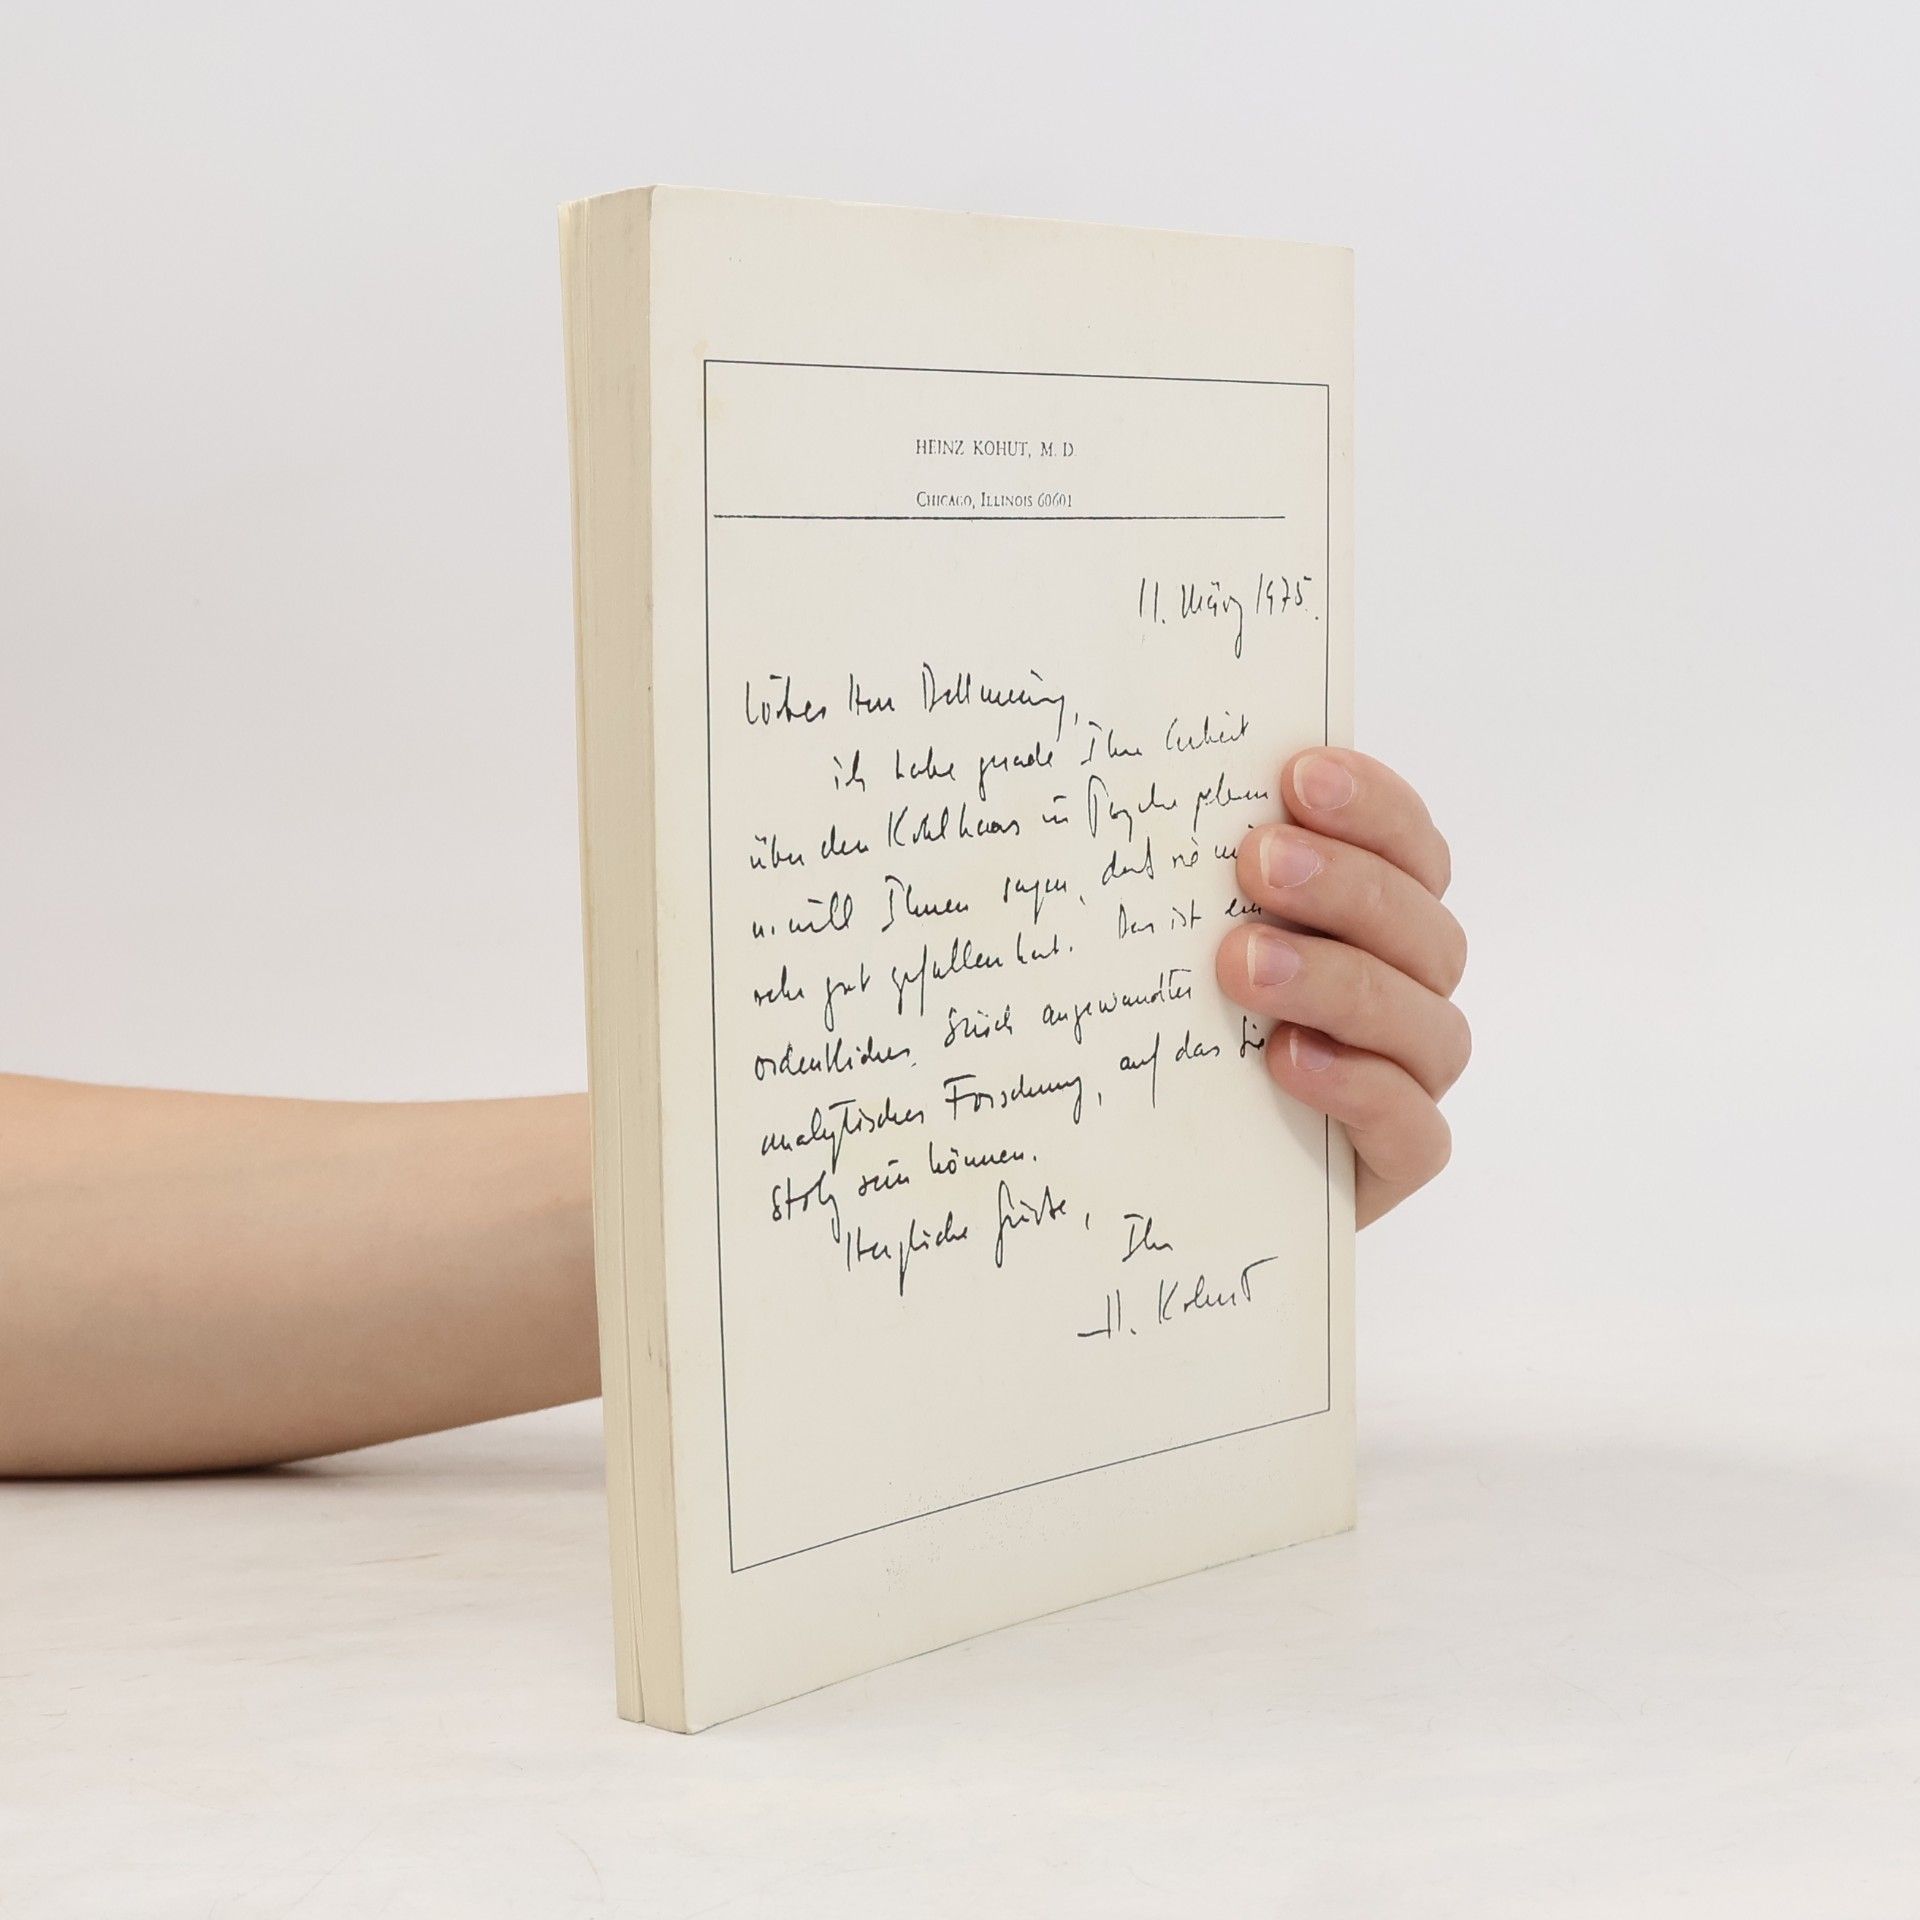 HEINZ KOHUT, M. D.
CHICAGO, ILLINOIS 60601
11. März 1975.
Lieber Herr Dettmering,
ich habe gerade Ihre Arbeit
über den Kohlhaas in Psyche gelesen
u. will Ihnen sagen, daß sie
sehr gut gefallen hat. Das ist ein
ordentliches Stück angewandter
analytischer Forschung, auf das Sie
stolz sein können.
Herzliche Grüße,
Ihr
H. Kohut